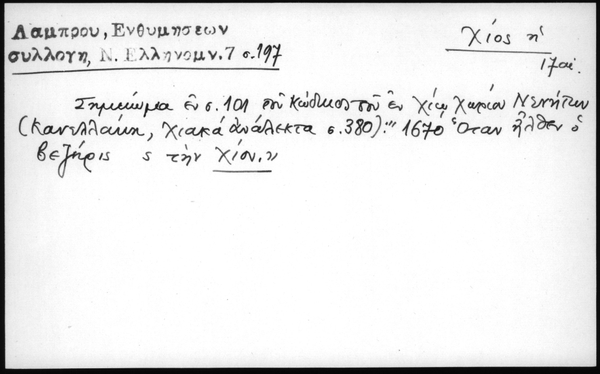 Λαμπρου, Ενθυμησεων
συλλογη, Ν. Ελληνομν. 7 σ. 197
Χίος ἡ
17 αἰ.
Σημείωμα ἐν σ. 101 τοῦ κώδικος τοῦ ἐν Χίῳ χωρίου Νενήτων
(Κανελλάκη, Χιακά ἀνάλεκτα σ. 380): "1670 Ὅταν ἦλθεν ὁ
βεζήρις ς τὴν Χίον."